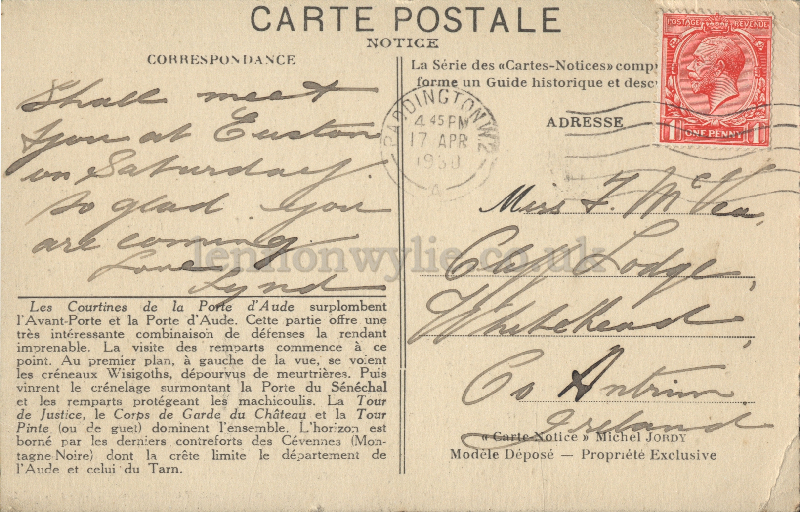 CARTE POSTALE
NOTICE
CORRESPONDANCE
Shall meet
you at Euston
on Saturday.
So glad you
are coming.
Love
Les Courtines de la Porte d'Aude surplombent
l'Avant-Porte et la Porte d'Aude. Cette partie offre une
très intéressante combinaison de défenses la rendant
imprenable. La visite des remparts commence à ce
point. Au premier plan, à gauche de la vue, se voient
les créneaux Wisigoths, dépourvus de meurtrières. Puis
vinrent le crénelage surmontant la Porte du Sénéchal
et les remparts protégeant les machicoulis. La Tour
de Justice, le Corps de Garde du Château et la Tour
Pinte (ou de guet) dominent l'ensemble. L'horizon est
borné par les derniers contreforts des Cévennes (Mon-
tagne-Noire) dont la crête limite le département de
l'Aude et celui du Tarn.
La Série des «Cartes-Notices» comp
forme un Guide historique et desc
ADRESSE
POSTAGE REVENUE
1 ONE PENNY 1
PADDINGTON. W.2
4.45 PM
17 APR
1930
A
Miss F. McVea,
Cliff Lodge,
Whitehead,
Co Antrim.
Ireland
« Carte-Notice » Michel JORDY
Modèle Déposé — Propriété Exclusive
lennonwylie.co.uk